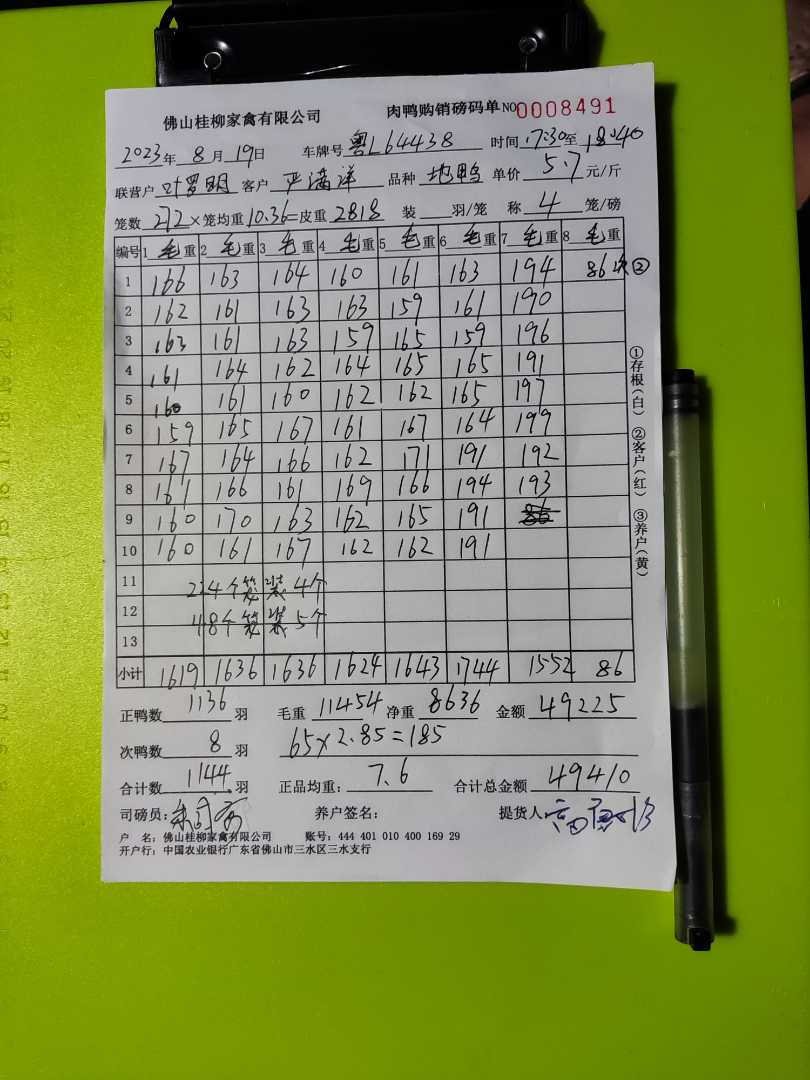 佛山桂柳家禽有限公司 肉鸭购销磅码单 NO 0008491
2023年 8月 19日 车牌号 粤L64438 时间 17:30至 18:40
联营户 叶罗明 客户 严满洋 品种 地鸭 单价 5.7 元/斤
笼数 272 ×笼均重 10.36 =皮重 2818 装 羽/笼 称 4 笼/磅
编号 1 毛重 2 毛重 3 毛重 4 毛重 5 毛重 6 毛重 7 毛重 8 毛重
1 166 163 164 160 161 163 194 86 次②
2 162 161 163 163 159 161 190
3 163 161 163 159 165 159 196
4 161 164 162 164 165 165 191
5 160 161 160 162 162 165 197
6 159 165 167 161 167 164 199
7 167 164 166 162 171 191 192
8 161 166 161 169 166 194 193
9 160 170 163 162 165 191 86
10 160 161 167 162 162 191
11 224个笼装4个
12 48个笼装5个
13
小计 1619 1636 1636 1624 1643 1744 1552 86
正鸭数 1136 羽 毛重 11454 净重 8636 金额 49225
次鸭数 8 羽 65×2.85=185
合计数 1144 羽 正品均重: 7.6 合计总金额 49410
司磅员: 养户签名: 提货人
户 名: 佛山桂柳家禽有限公司 账号: 444 401 010 400 169 29
开户行: 中国农业银行广东省佛山市三水区三水支行
①存根(白) ②客户(红) ③养户(黄)